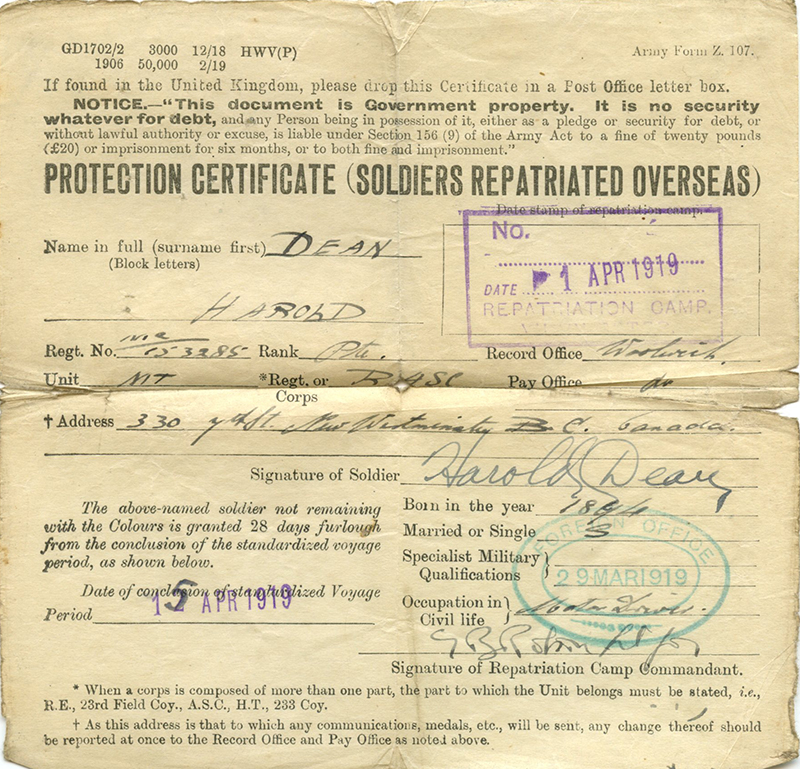 GD1702/2 3000 12/18 HWV(P)
1906 50,000 2/19
Army Form Z. 107.
If found in the United Kingdom, please drop this Certificate in a Post Office letter box.
NOTICE.—"This document is Government property. It is no security
whatever for debt, and any Person being in possession of it, either as a pledge or security for debt, or
without lawful authority or excuse, is liable under Section 156 (9) of the Army Act to a fine of twenty pounds
(£20) or imprisonment for six months, or to both fine and imprisonment."
PROTECTION CERTIFICATE (SOLDIERS REPATRIATED OVERSEAS)
Date stamp of repatriation camp.
No.
DATE 1 APR 1919
REPATRIATION CAMP.
Name in full (surname first) DEAN
(Block letters)
HAROLD
Regt. No. M2 153285 Rank Pte. Record Office Woolwich.
Unit MT *Regt. or Corps RASC Pay Office do
† Address 330 7th St. New Westminster B.C. Canada.
Signature of Soldier Harold Dean
The above-named soldier not remaining
with the Colours is granted 28 days furlough
from the conclusion of the standardized voyage
period, as shown below.
Date of conclusion of standardized Voyage
Period 15 APR 1919
Born in the year 1894
Married or Single S
Specialist Military
Qualifications
Occupation in
Civil life Motor Driver.
FOREIGN OFFICE
29 MAR 1919
Signature of Repatriation Camp Commandant.
* When a corps is composed of more than one part, the part to which the Unit belongs must be stated, i.e.,
R.E., 23rd Field Coy., A.S.C., H.T., 233 Coy.
† As this address is that to which any communications, medals, etc., will be sent, any change thereof should
be reported at once to the Record Office and Pay Office as noted above.